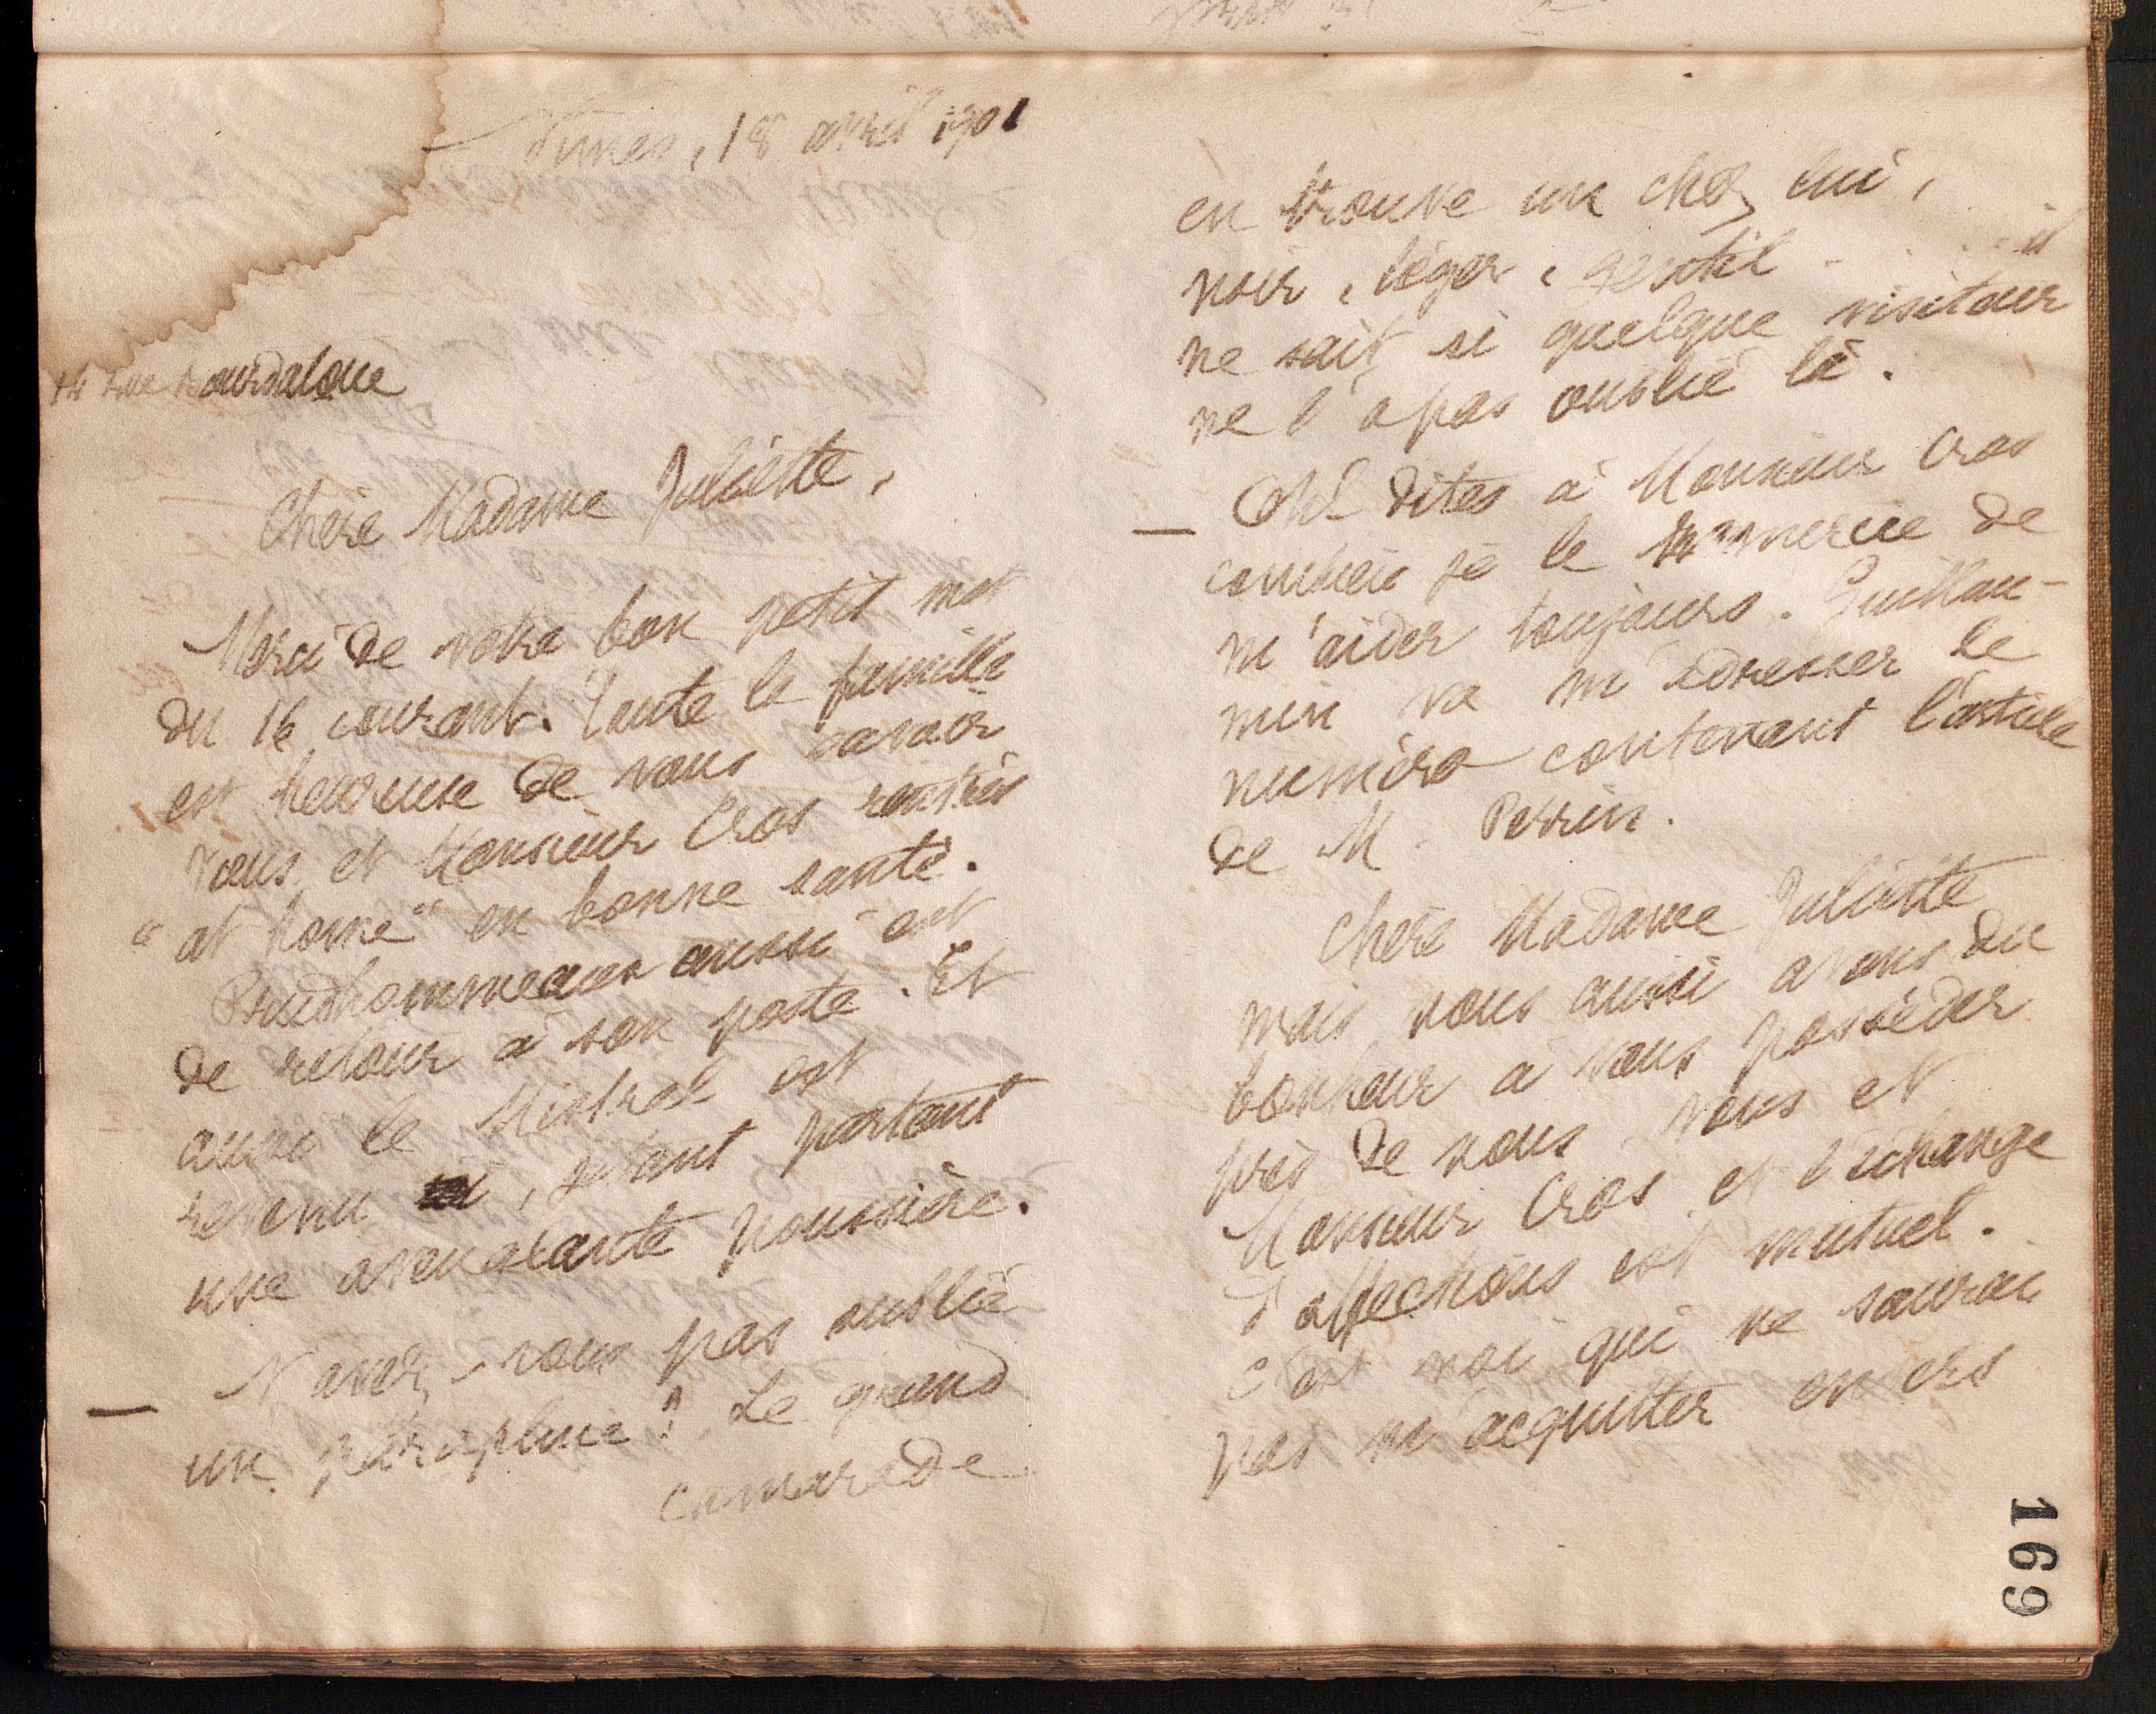 Nîmes, 18 avril 1901
14 rue Bourdaloue
Chère Madame Juliette,
Merci de votre bon petit mot
du 16 courant. Toute la famille
est heureuse de vous savoir
vous et Monsieur Cros rentrés
"at home" en bonne santé.
Prudhommeaux aussi est
de retour à son poste. Et
aussi le Mistral est
revenu, jetant partout
une aveuglante poussière.
— N'avez-vous pas oublié
un parapluie? Le grand
camarade
en trouve un chez lui,
noir, léger, gentil - il
ne sait si quelque visiteur
ne l'a pas oublié là.
— Oh! dites à Monsieur Cros
combien je le remercie de
m'aider toujours. Guillau-
min va m'adresser le
numéro contenant l'article
de M. Perrin.
Chère Madame Juliette
mais nous aussi avons du
bonheur à vous posséder
près de nous vous et
Monsieur Cros et l'échange
d'affections est mutuel.
C'est moi qui ne saurai
pas m'acquitter envers
169